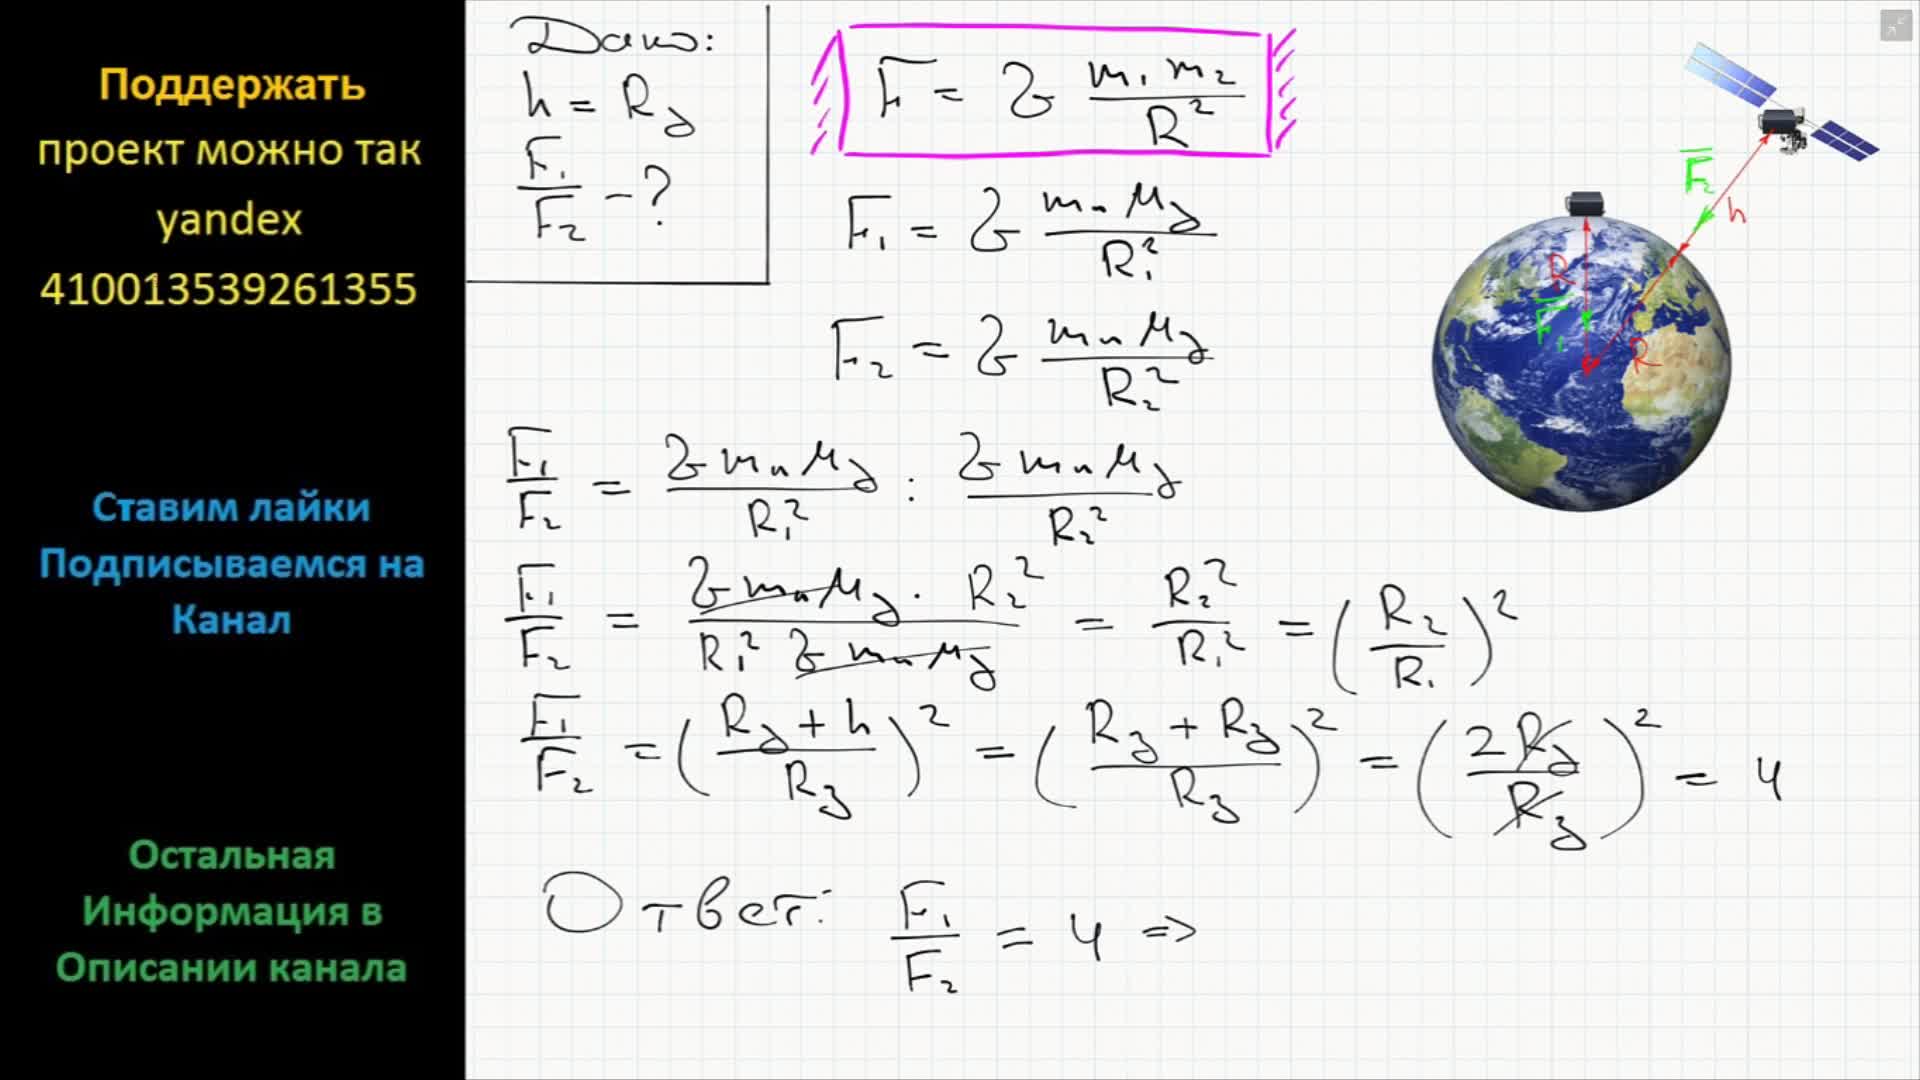 Поддержать
проект можно так
yandex
410013539261355
Ставим лайки
Подписываемся на
Канал
Остальная
Информация в
Описании канала
Дано:
h = Rз
F₁/F₂ - ?
F = G m₁ m₂ / R²
F₁ = G mп Mз / R₁²
F₂ = G mп Mз / R₂²
F₁/F₂ = G mп Mз / R₁² : G mп Mз / R₂²
F₁/F₂ = G mп Mз · R₂² / R₁² G mп Mз = R₂² / R₁² = (R₂ / R₁)²
F₁/F₂ = (Rз + h / Rз)² = (Rз + Rз / Rз)² = (2Rз / Rз)² = 4
Ответ: F₁/F₂ = 4 =>
F₂
h
R
F₁
R